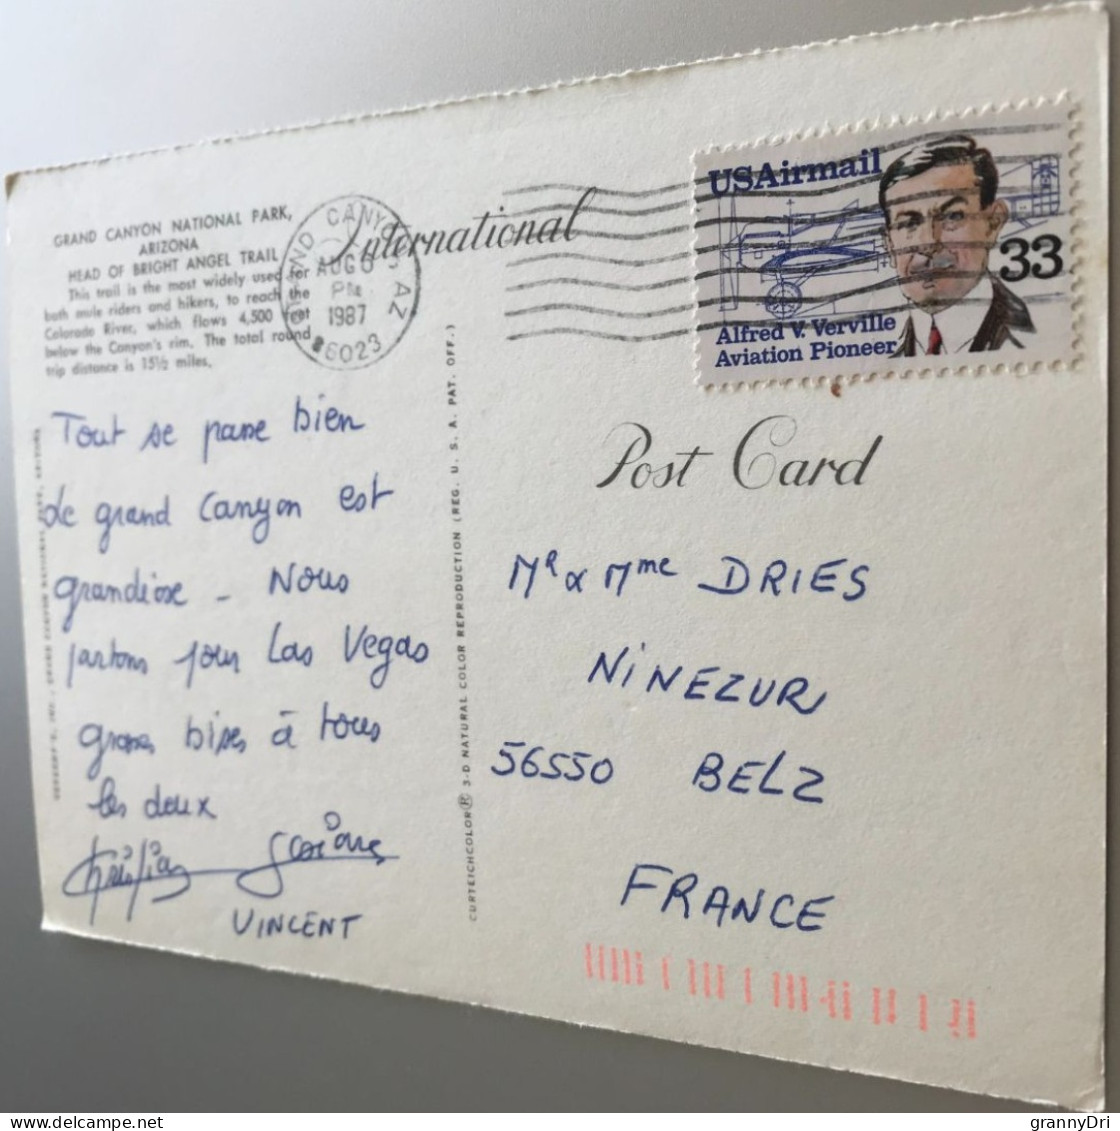 GRAND CANYON NATIONAL PARK,
ARIZONA
HEAD OF BRIGHT ANGEL TRAIL
This trail is the most widely used for
both mule riders and hikers, to reach the
Colorado River, which flows 4,500 feet
below the Canyon's rim. The total round
trip distance is 15½ miles.
GRAND CANYON AZ
AUG 6
PM
1987
86023
International
USAirmail
33
Alfred V. Verville
Aviation Pioneer
Post Card
Tout se passe bien
Le grand Canyon est
grandiose - Nous
partons pour Las Vegas
grosses bises à tous
les deux
VINCENT
CURTEICHCOLOR® 3-D NATURAL COLOR REPRODUCTION (REG. U. S. A. PAT. OFF.)
Mr & Mme DRIES
NINEZUR
56550 BELZ
FRANCE
grannyDri